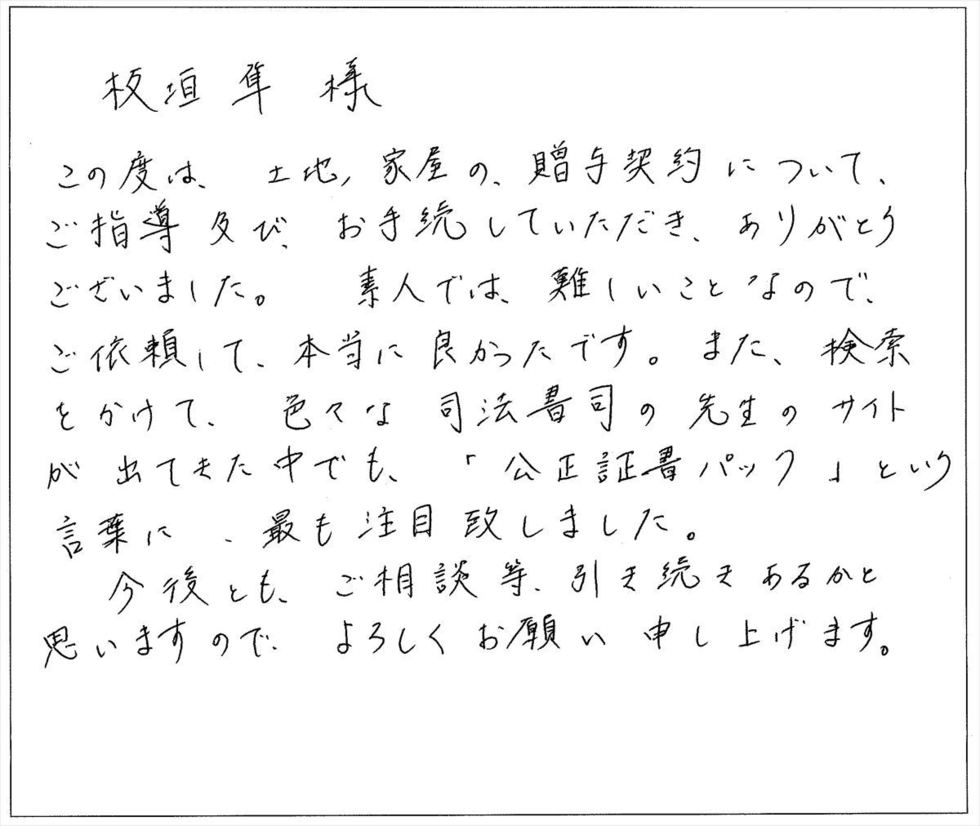 板垣隼 様
この度は、土地、家屋の、贈与契約について、
ご指導及び、お手続していただき、ありがとう
ございました。 素人では、難しいことなので、
ご依頼して、本当に良かったです。また、検索
をかけて、色々な司法書司の先生のサイト
が出てきた中でも、「公正証書パック」という
言葉に、最も注目致しました。
今後とも、ご相談等、引き続きあるかと
思いますので、よろしくお願い申し上げます。